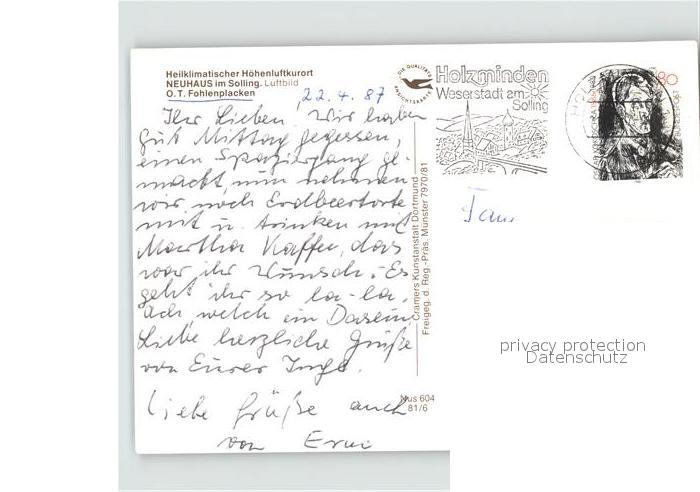 Heilklimatischer Höhenluftkurort
NEUHAUS im Solling. Luftbild
O. T. Fohlenplacken
22.4.87
Ihr Lieben, Wir haben
gut Mittag gegessen,
einen Spaziergang ge-
macht, nun nehmen
wir noch Erdbeertorte
mit u. trinken mit
Martha Kaffee, das
war ihr Wunsch. Es
geht ihr so la-la,
ach welch ein Dasein
Liebe herzliche Grüße
von Eurer Inge.
Liebe Grüße auch
von Erni
DIE QUALITÄTS
ANSICHTSKARTE
Cramers Kunstanstalt Dortmund
Freigeg. d. Reg.-Präs. Münster 7970/81
Nus 604
81/6
Holzminden
Weserstadt am
Solling
80
Fam
privacy protection
Datenschutz